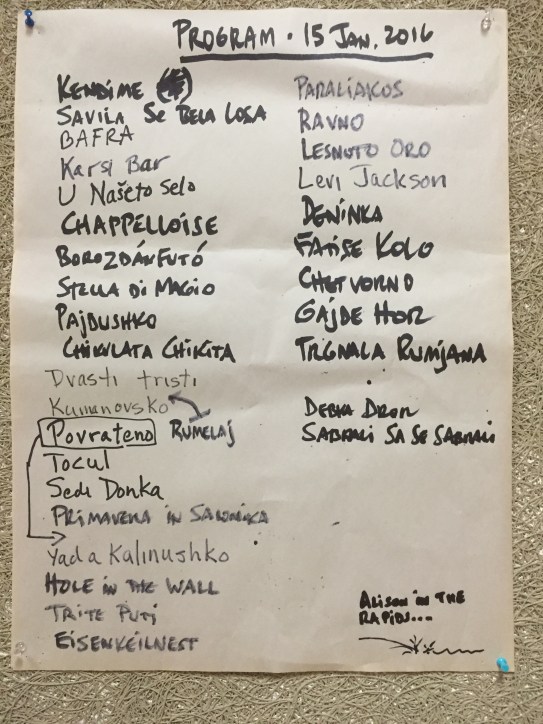 PROGRAM · 15 JAN. 2016
KENDIME
SAVILA SE BELA LOSA
BAFRA
Karsi Bar
U Našeto Selo
CHAPPELLOISE
BOROZDÁNFUTÓ
STELLA DI MAGIO
PAJDUSHKO
CHIKULATA CHIKITA
Dvasti tristi
Kumanovsko
Povrateno RUMELAJ
Tocul
Sedi Donka
PRIMAVERA IN SALONIKA
Yada Kalinushko
HOLE IN THE WALL
TRITE PUTI
EISENKEILNEST
PARALIAKOS
RAVNO
LESNOTO ORO
Levi Jackson
DENINKA
FATISE KOLO
CHETVORNO
GAJDE HORE
TRGNALA RUMJANA
DEBKA DROR
SABRALI SA SE SABRALI
ALISON IN THE
RAPIDS...